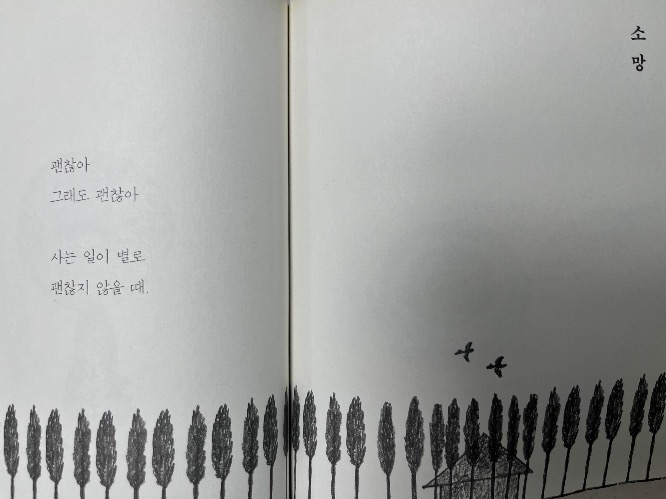 괜찮아
그래도 괜찮아
사는 일이 별로
괜찮지 않을 때.
소망